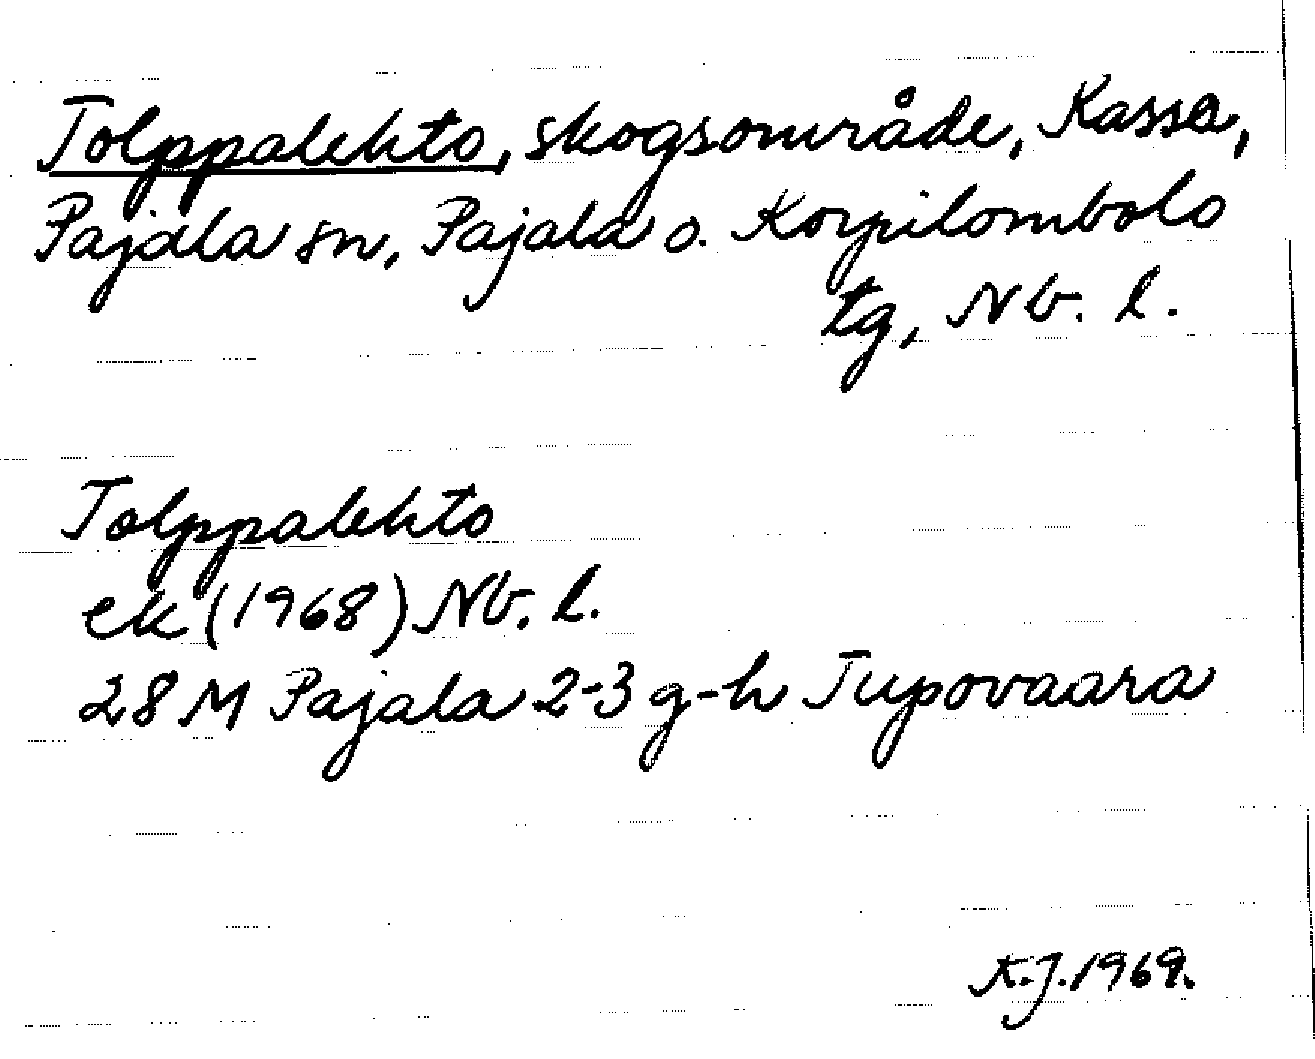 Tolppalehto, skogsområde, Kassa,
Pajala sn, Pajala o. Korpilombolo
tg, Nb. l.
Tolppalehto
ek (1968) Nb. l.
28 M Pajala 2-3 g-h Tupovaara
K.J. 1969.